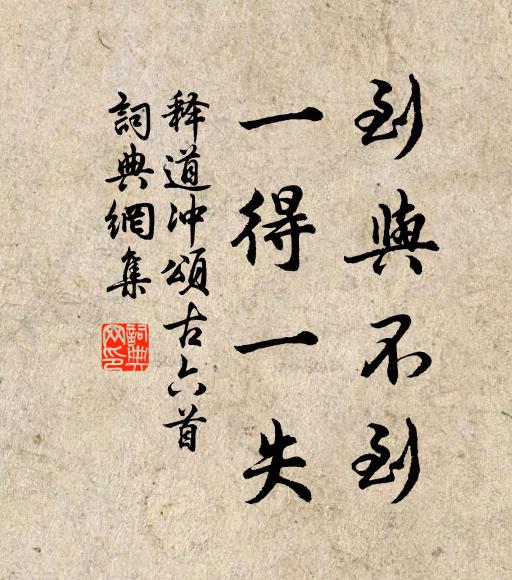 到與不到
一得一失
释道冲頌古六首
詞典網集
詞典
网印